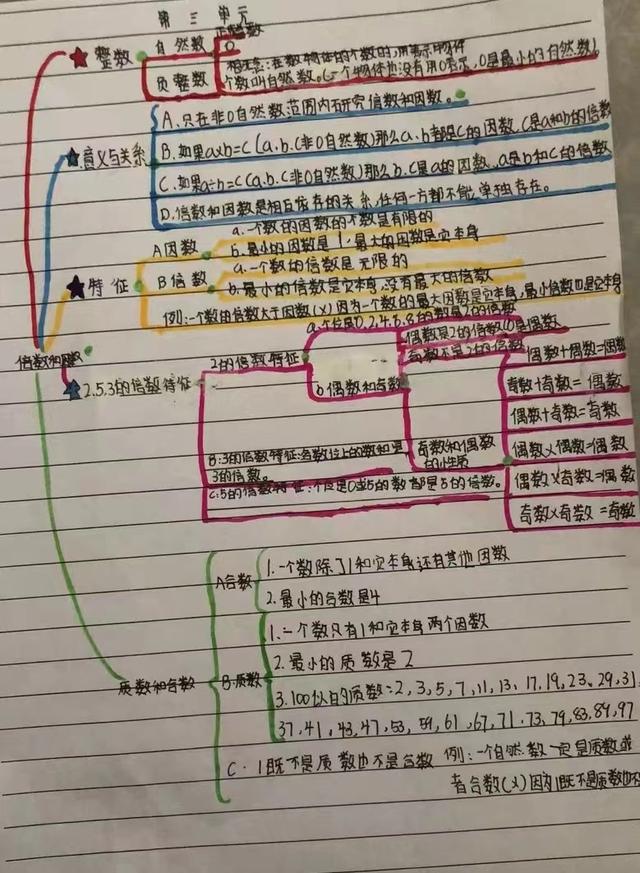 第三单元
整数
自然数
正整数
0
负整数
概念:在数物体的个数时,用表示物体
个数叫自然数。(一个物体也没有用0表示,0是最小的自然数)
意义与关系
A、只在非0自然数范围内研究倍数和因数。
B.如果a×b=c(a.b.c非0自然数)那么a、b都是c的因数.c是a和b的倍数
C.如果a÷b=c(a.b.c非0自然数)那么b.c是a的因数、a是b和c的倍数
D.倍数和因数是相互依存的关系,任何一方都不能单独存在。
特征
A因数
a.一个数的因数的个数是有限的
b.最小的因数是1,最大的因数是它本身
B倍数
a.一个数的倍数是无限的
b.最小的倍数是它本身,没有最大的倍数
例:一个数的倍数大于因数(×)因为一个数的最大因数是它本身,最小倍数也是它本身
倍数和因数
2.5.3的倍数特征
2的倍数特征
a.个位是0,2,4,6,8的数是2的倍数
b偶数和奇数
偶数是2的倍数(0是偶数
奇数不是2的倍数
奇数和偶数
的小性质
偶数+偶数=偶数
奇数+奇数=偶数
偶数+奇数=奇数
偶数×偶数=偶数
偶数×奇数=偶数
奇数×奇数=奇数
B:3的倍数特征:各数位上的数和是
3的倍数。
C:5的倍数特征:个位是0或5的数都是5的倍数。
质数和合数
A合数
1.一个数除了1和它本身还有其他因数
2.最小的合数是4
B.质数
1.一个数只有1和它本身两个因数
2.最小的质数是2
3.100以内的质数:2,3,5,7,11,13,17,19,23,29,31
37,41,43,47,53,59,61,67,71,73,79,83,89,97
C.1既不是质数也不是合数 例:一个自然数一定是质数或
者合数(×)因为1既不是质数也不